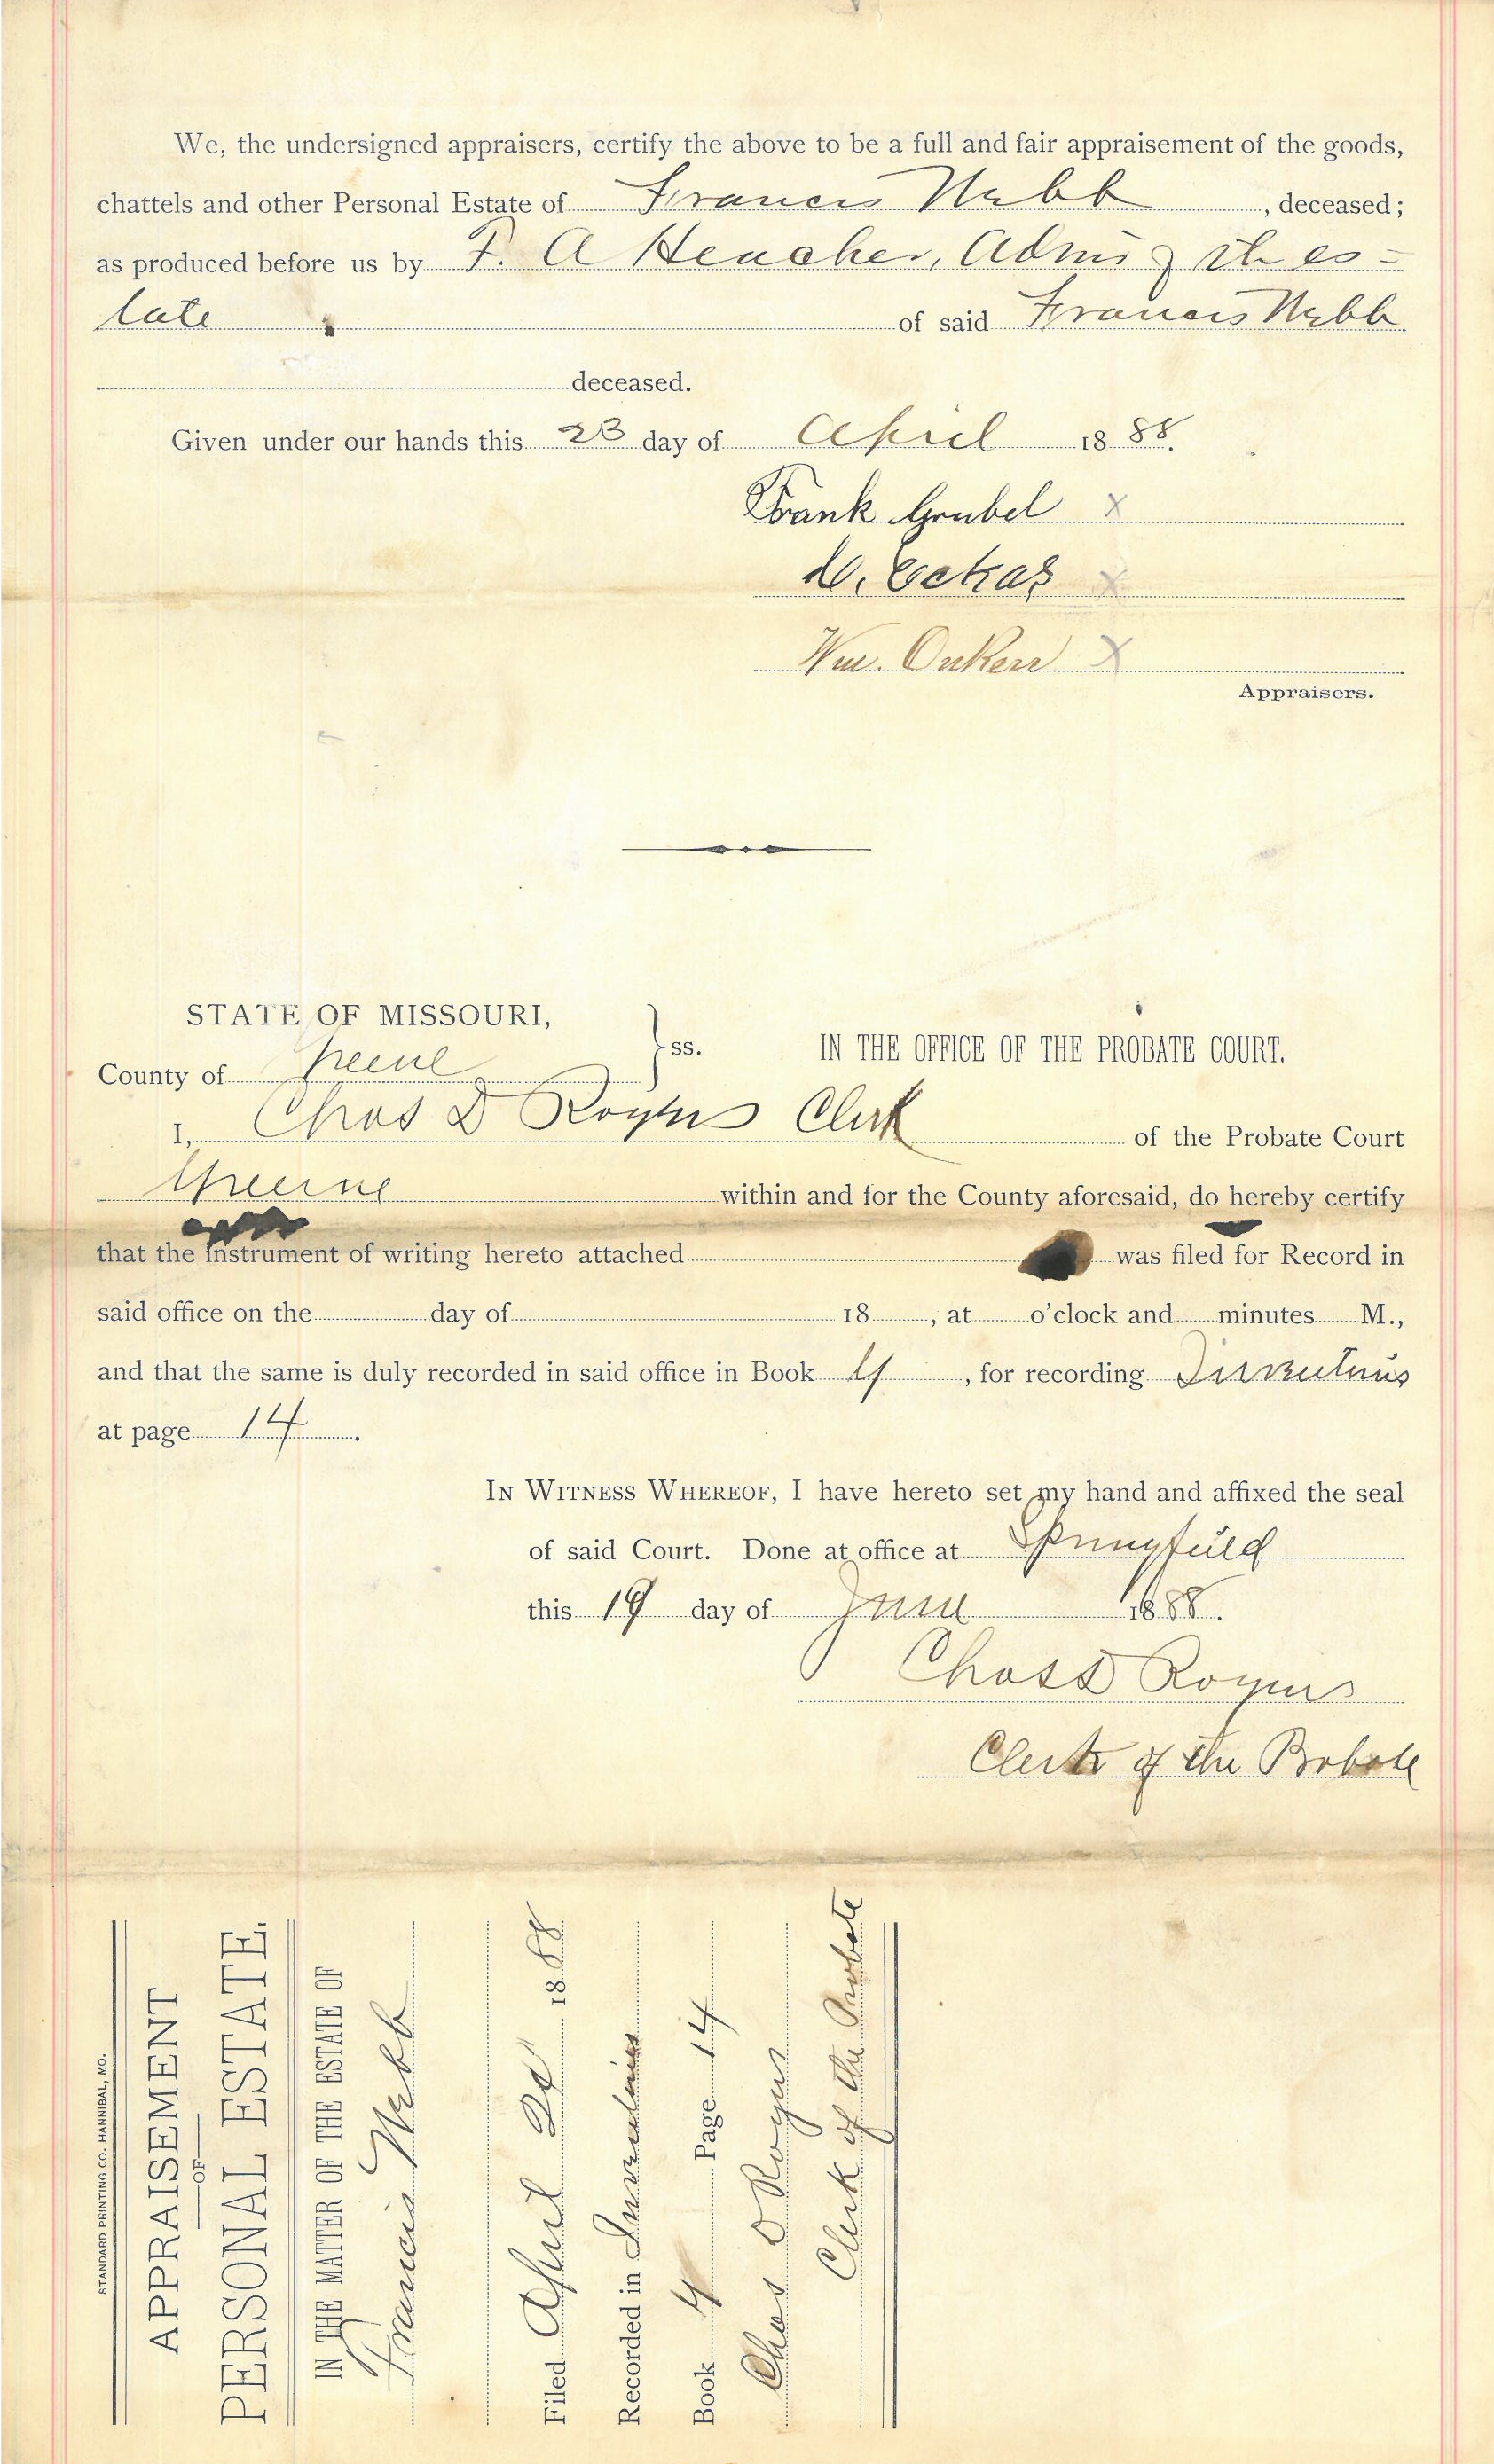 We, the undersigned appraisers, certify the above to be a full and fair appraisement of the goods,
chattels and other Personal Estate of Francis Webb, deceased;
as produced before us by F. A Heacker, Admr of the es=
tate of said Francis Webb
deceased.
Given under our hands this 23 day of April 1888.
Frank Grubel X
X
Wm. Onken X
Appraisers.
STATE OF MISSOURI,
County of Greene } ss. IN THE OFFICE OF THE PROBATE COURT.
I, Chas D Rogers Clerk of the Probate Court
Greene within and for the County aforesaid, do hereby certify
that the instrument of writing hereto attached was filed for Record in
said office on the day of 18 , at o'clock and minutes M.,
and that the same is duly recorded in said office in Book 4, for recording Inventories
at page 14.
IN WITNESS WHEREOF, I have hereto set my hand and affixed the seal
of said Court. Done at office at Springfield
this 19 day of June 1888.
Chas D Rogers
Clerk of the Probate
STANDARD PRINTING CO. HANNIBAL, MO.
APPRAISEMENT
OF
PERSONAL ESTATE.
IN THE MATTER OF THE ESTATE OF
Francis Webb
Filed April 1888
Recorded in Inventories
Book 4 Page 14
Chas D Rogers
Clerk of the Probate